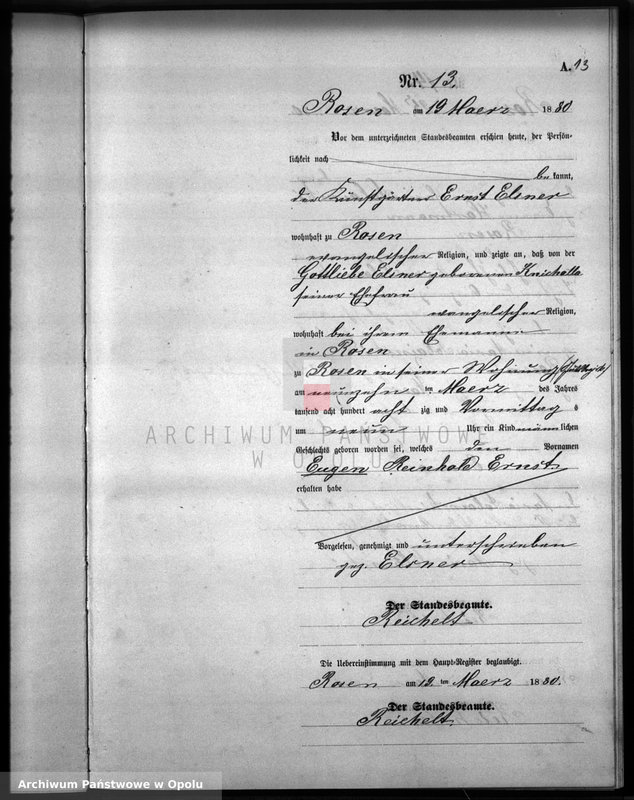 A. 13
Nr. 13.
Rosen am 19 Maerz 1880
Vor dem unterzeichneten Standesbeamten erschien heute, der Persön-
lichkeit nach
be kannt,
der Kunstgärtner Ernst Elsner
wohnhaft zu Rosen
evangelischer Religion, und zeigte an, daß von der
Gottliebe Elsner geborenen Knichalla
seiner Ehefrau
evangelischer Religion,
wohnhaft bei ihrem Ehemanne
in Rosen
zu Rosen in seiner Wohnung
am neunzehn ten Maerz des Jahres
tausend acht hundert acht zig und Vormittag s
um neun Uhr ein Kind männlichen
Geschlechts geboren worden sei, welches den Vornamen
Eugen Reinhold Ernst
erhalten habe
Vorgelesen, genehmigt und unterschrieben
gez. Elsner
Der Standesbeamte.
Reichelt
Die Uebereinstimmung mit dem Haupt-Register beglaubigt.
Rosen am 19. ten Maerz 1880.
Der Standesbeamte.
Reichelt
ARCHIWUM PAŃSTWOWE
W OPOLU
Archiwum Państwowe w Opolu